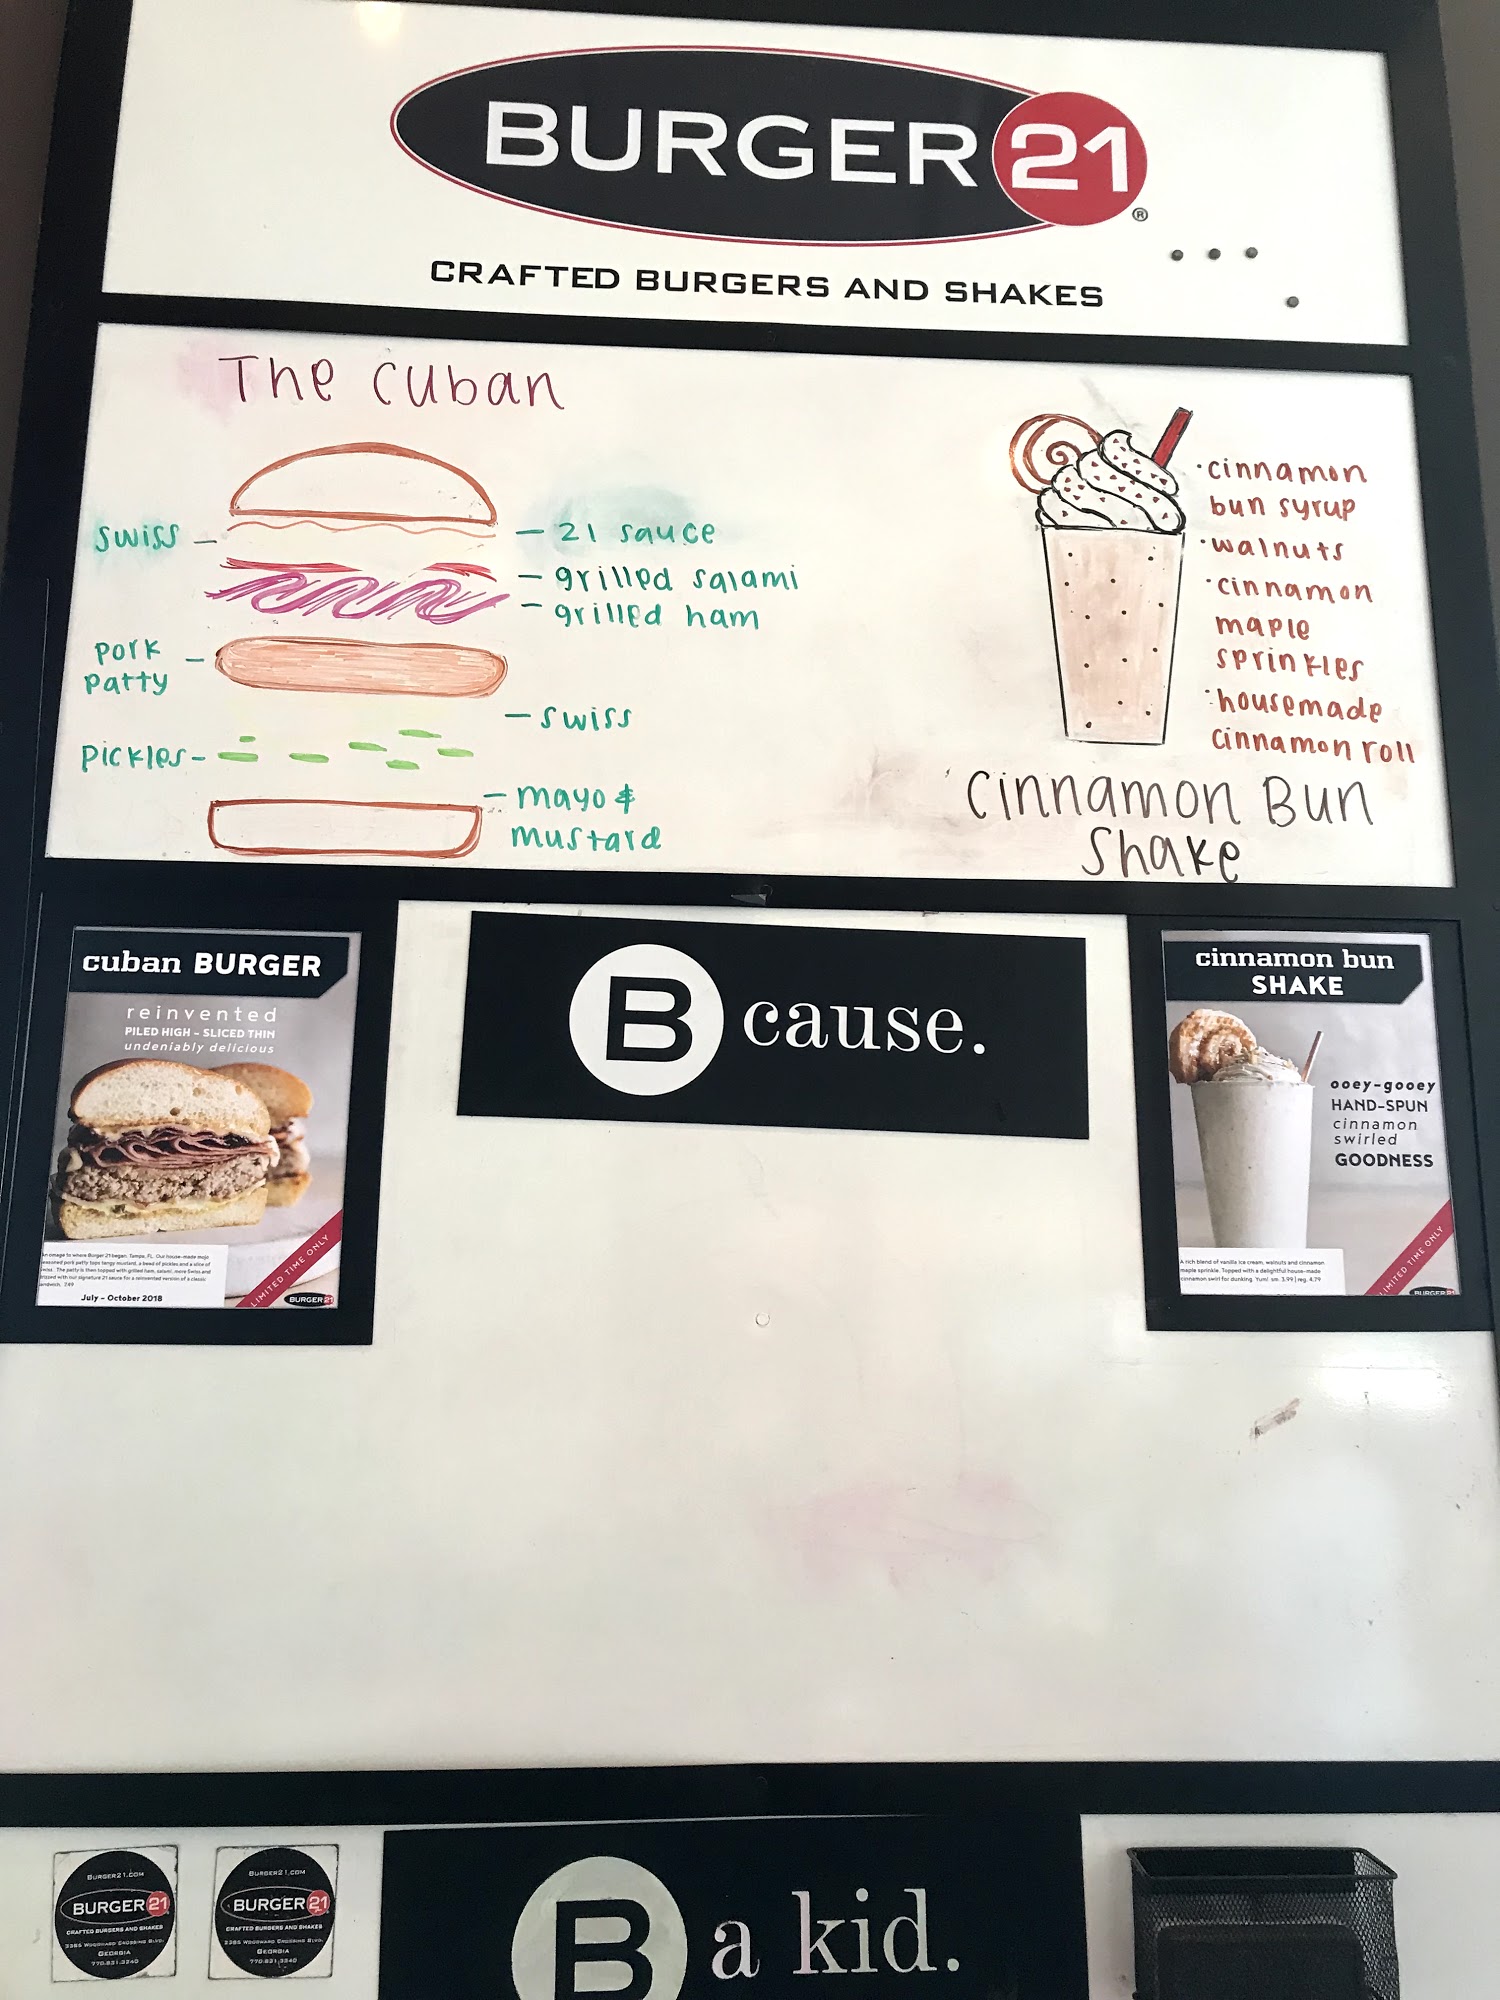 BURGER 21®
CRAFTED BURGERS AND SHAKES
The Cuban
swiss
21 sauce
grilled salami
grilled ham
pork
patty
swiss
pickles
mayo &
mustard
·cinnamon
bun syrup
·walnuts
·cinnamon
maple
sprinkles
·housemade
cinnamon roll
Cinnamon Bun
Shake
cuban BURGER
reinvented
PILED HIGH - SLICED THIN
undeniably delicious
An omage to where Burger 21 began, Tampa, FL. Our house-made mojo
seasoned pork patty tops tangy mustard, a bead of pickles and a slice of
Swiss. The patty is then topped with grilled ham, salami, more Swiss and
with our signature 21 sauce for a reinvented version of a classic
sandwich. 7.49
July - October 2018
LIMITED TIME ONLY
BURGER 21
B cause.
cinnamon bun
SHAKE
ooey-gooey
HAND-SPUN
cinnamon
swirled
GOODNESS
A rich blend of vanilla ice cream, walnuts and cinnamon
maple sprinkle. Topped with a delightful house-made
cinnamon swirl for dunking. Yum! sm. 3.99 | reg. 4.79
LIMITED TIME ONLY
BURGER 21
BURGER21.COM
BURGER 21
CRAFTED BURGERS AND SHAKES
2365 WOODWARD CROSSING BLVD.
GEORGIA
770.831.3240
BURGER21.COM
BURGER 21
CRAFTED BURGERS AND SHAKES
2365 WOODWARD CROSSING BLVD.
GEORGIA
770.831.3240
B a kid.